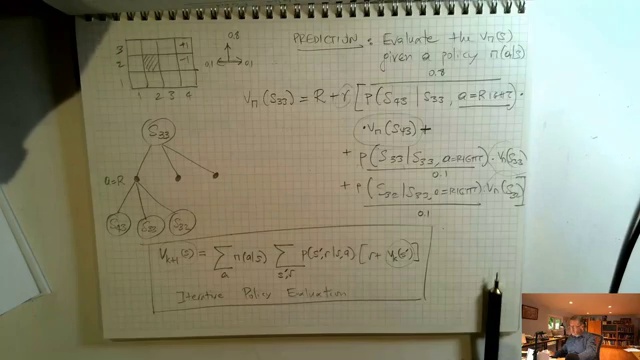 PREDICTION: Evaluate the Vπ(s)
given a policy π(a|s)
3 +1
2 -1
1
1 2 3 4
0.8
0.1 0.1
0.8
Vπ(S33) = R + γ [ p(S43 | S33, a=RIGHT) ·
· Vπ(S43) +
+ p(S33 | S33, a=RIGHT) · Vπ(S33)
0.1
+ p(S32 | S33, a=RIGHT) · Vπ(S32) ]
0.1
S33
a=R
S43 S33 S32
Vk+1(s) = Σa π(a|s) Σs',r p(s',r|s,a) [ r + γk(s') ]
Iterative Policy Evaluation